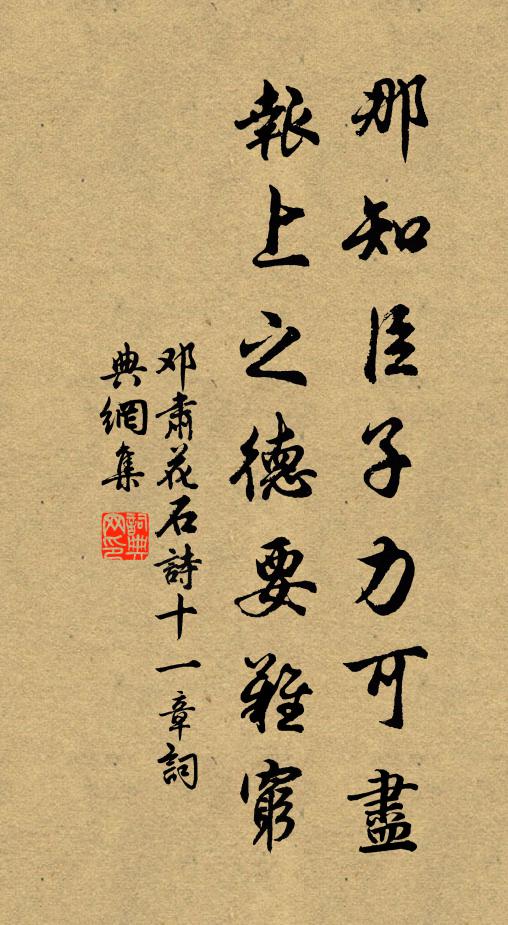 那知臣子力可盡
報上之德要難窮
邓肅花石詩十一章詞
典網集
詞典网印